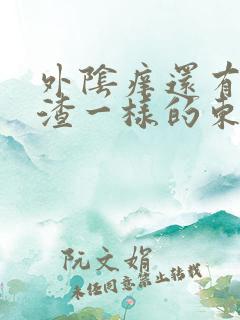 外陰痒還有
渣一樣的東
阮文娟
未經同意禁止轉載